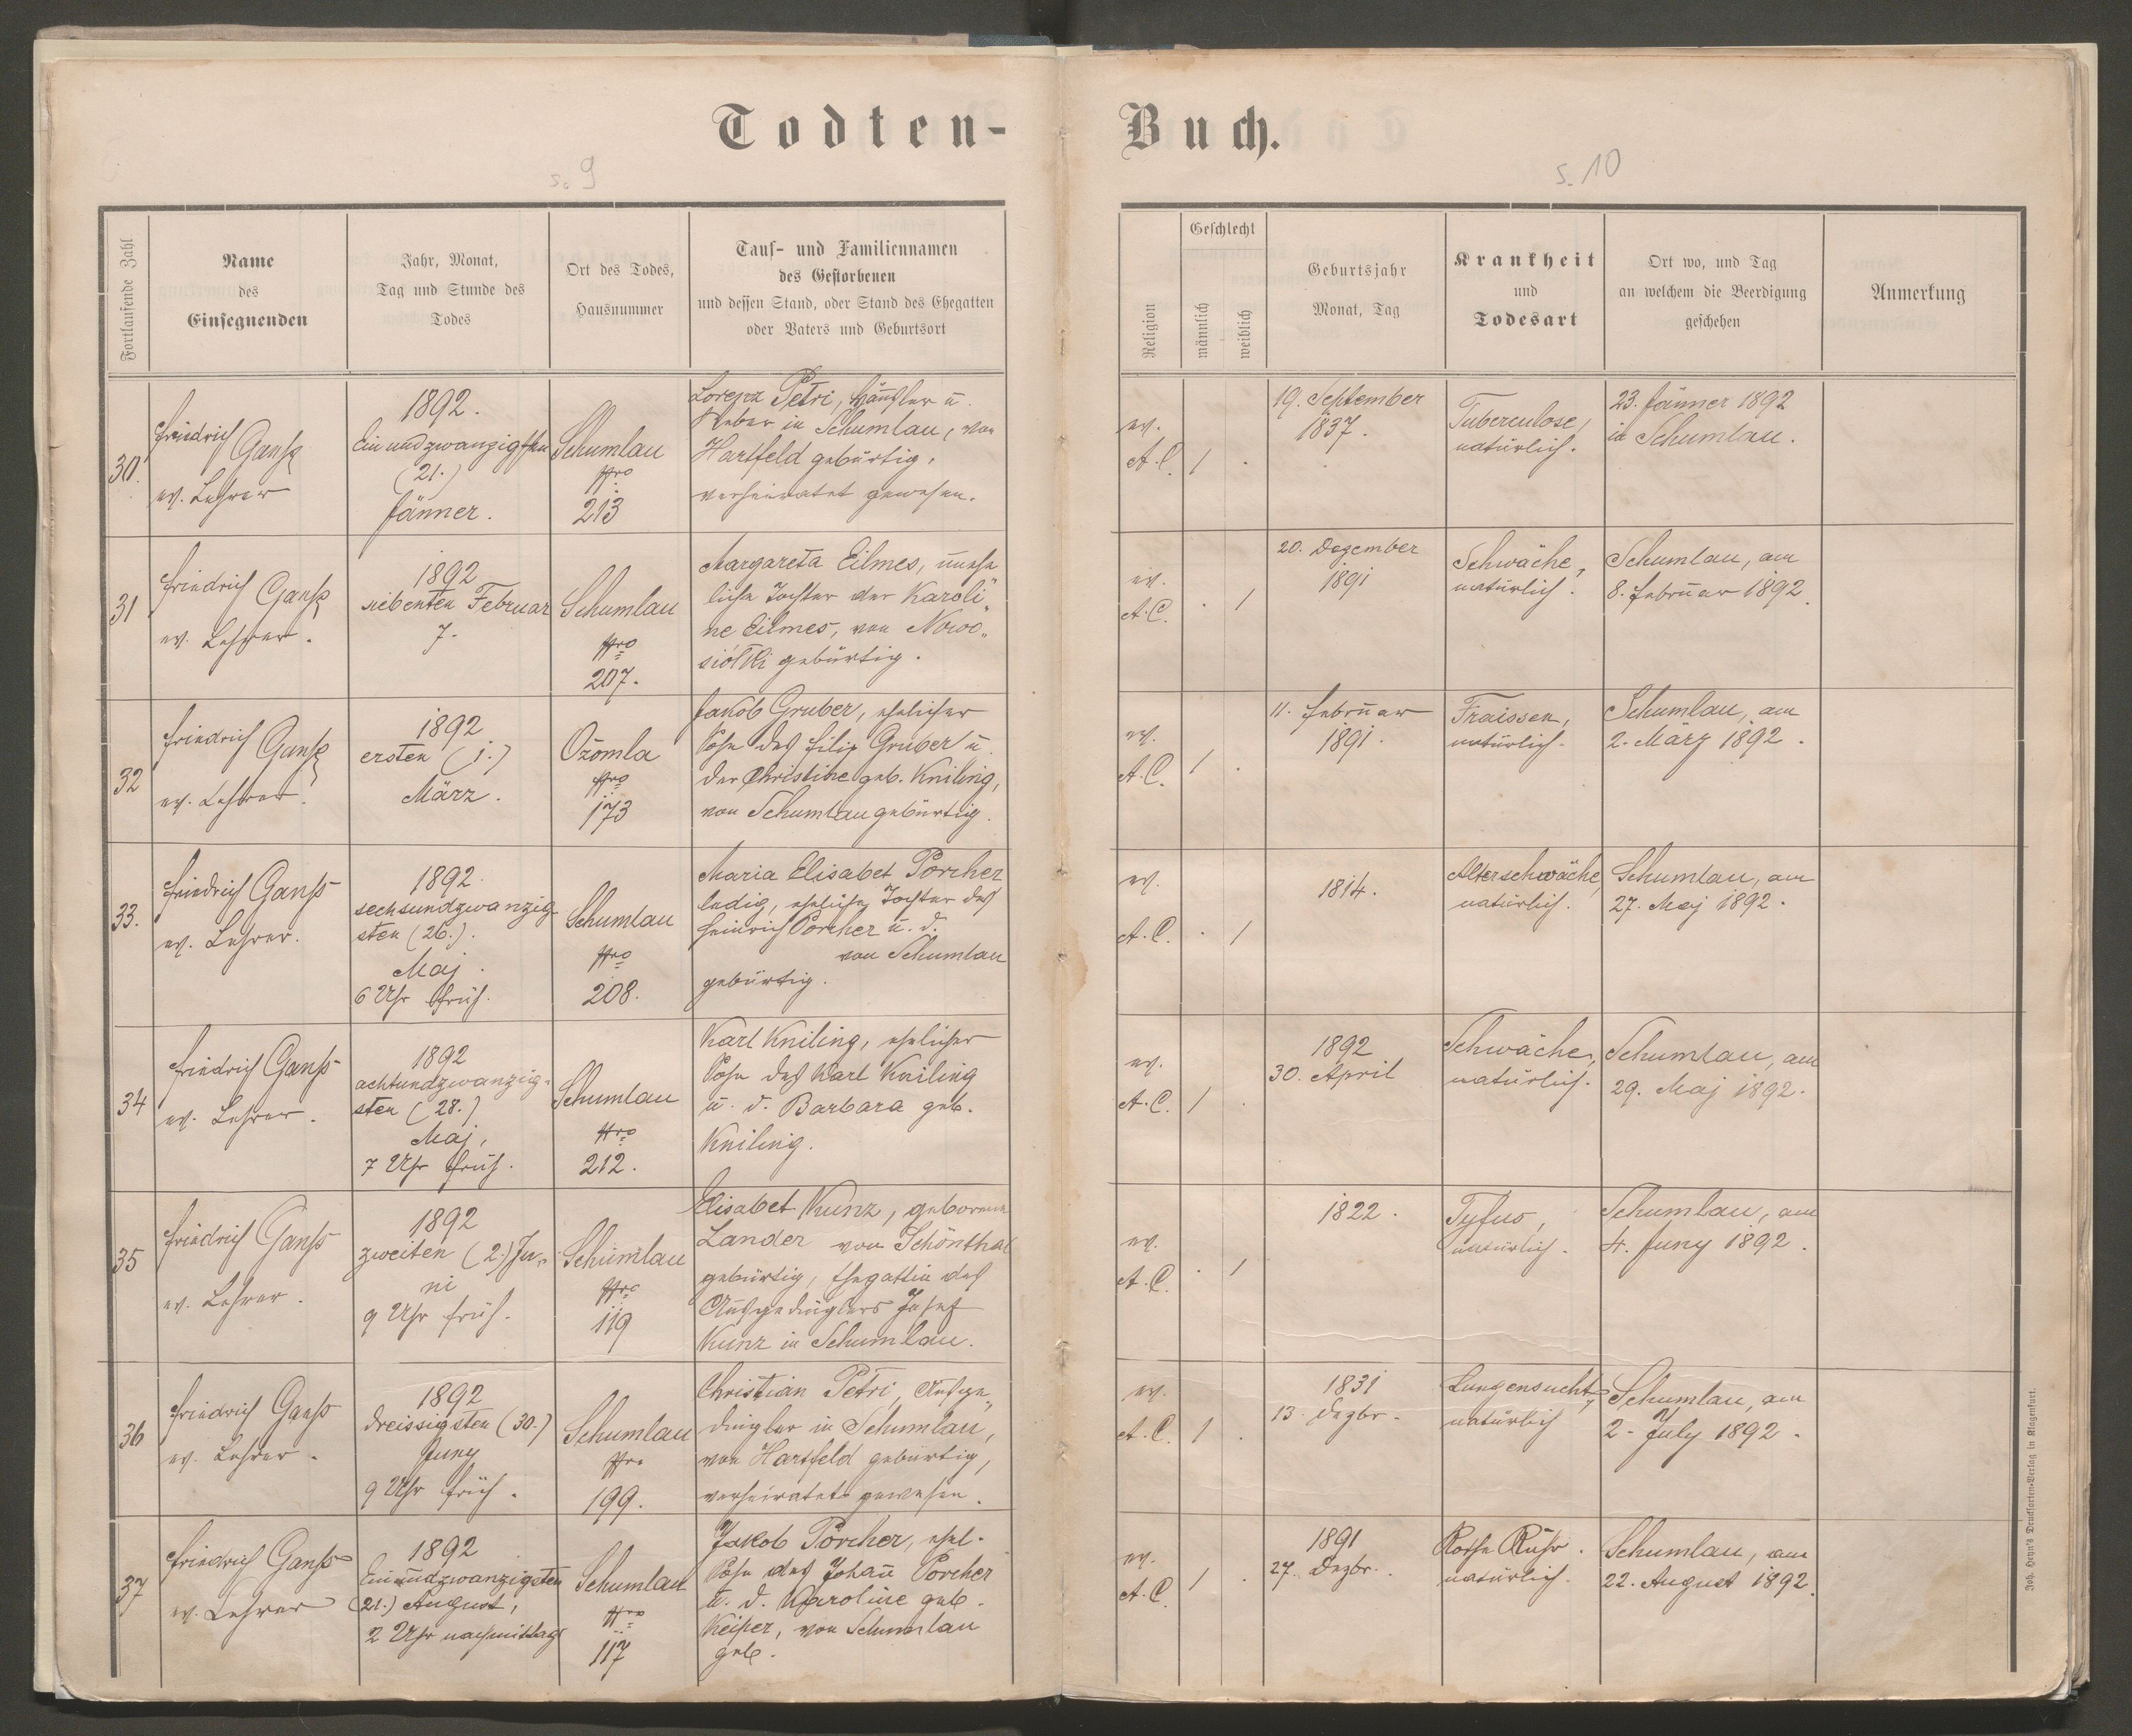 Todten-
s. 9
Fortlaufende Zahl
Name
des
Einsegnenden
Jahr, Monat,
Tag und Stunde des
Todes
Ort des Todes,
Hausnummer
Tauf- und Familiennamen
des Gestorbenen
und dessen Stand, oder Stand des Ehegatten
oder Vaters und Geburtsort
30.
Friedrich
Ganß
ev. Lehrer
1892.
Ein und zwanzigsten
(21.)
Jänner.
Schumlau
Nro
213
Lorenz Petri, Häusler u.
Weber in Schumlau, von
Hartfeld gebürtig,
verheiratet gewesen.
31
Friedrich Ganß
ev. Lehrer.
1892
siebenten Februar
7.
Schumlau
Nro
207.
Margareta Eilmes, unehe
liche Tochter der Karoli„
ne Eilmes, von Nowo„
siółki gebürtig.
32
Friedrich Ganß
ev. Lehrer.
1892
ersten (1.)
März.
Ożomla
Nro
173
Jakob Gruber, ehelicher
Sohn des Filip Gruber u.
der Christine geb. Kniling,
von Schumlau gebürtig.
33.
Friedrich Ganß
ev. Lehrer.
1892.
sechsundzwanzig-
sten (26.).
Maj.
6 Uhr früh.
Schumlau
Nro
208.
Maria Elisabet Porcher
ledig, eheliche Tochter des
Heinrich Porcher u. d.
von Schumlau
gebürtig.
34
Friedrich Ganß
ev. Lehrer.
1892
achtundzwanzig-
sten (28.)
Maj,
7 Uhr früh.
Schumlau
Nro
212.
Karl Kniling, ehelicher
Sohn des Karl Kniling
u. d. Barbara geb.
Kniling.
35
Friedrich Ganß
ev. Lehrer.
1892
zweiten (2.) Ju„
ni
9 Uhr früh.
Schumlau
Nro
119
Elisabet Kunz, geborene
Lander von Schönthal
gebürtig, Ehegattin des
Ausgedinglers Josef
Kunz in Schumlau.
36
Friedrich Ganß
ev. Lehrer.
1892
dreissigsten (30.)
Juny
9 Uhr früh.
Schumlau
Nro
199.
Christian Petri, Ausge„
dingler in Schumlau,
von Hartfeld gebürtig,
verheiratet gewesen.
37
Friedrich Ganß
ev. Lehrer
1892
Einundzwanzigsten
(21.) August,
2 Uhr nachmittags
Schumlau
Nro
117
Jakob Porcher, ehel.
Sohn des Johañ Porcher
u. d. Karoline geb.
Keiper, von Schumlau
geb.
Buch.
s. 10
Religion
Geschlecht
männlich
weiblich
Geburtsjahr
Monat, Tag
Krankheit
und
Todesart
Ort wo, und Tag
an welchem die Beerdigung
geschehen
Anmerkung
ev.
A.C.
1
.
19. September
1837.
Tuberculose,
natürlich.
23. Jänner 1892
in Schumlau.
ev.
A.C.
.
1
20. Dezember
1891
Schwäche,
natürlich.
Schumlau, am
8. Februar 1892.
ev.
A.C.
1
.
11. Februar
1891.
Fraissen,
natürlich.
Schumlau, am
2. März 1892.
ev.
A.C.
.
1
1814.
Alterschwäche,
natürlich.
Schumlau, am
27. Maj 1892.
ev.
A.C.
1
.
1892
30. April
Schwäche,
natürlich.
Schumlau, am
29. Maj 1892.
ev.
A.C.
.
1
1822.
Tyfus,
natürlich.
Schumlau, am
4. Juny 1892.
ev.
A.C.
1
.
1831
13. Dezbr.
Lungensucht,
natürlich
Schumlau, am
2. July 1892.
ev.
A.C.
1
.
1891
27. Dezbr.
Rothe Ruhr.
natürlich.
Schumlau, am
22. August 1892.
Joh. Heyn's Drucksorten-Verlag in Klagenfurt.